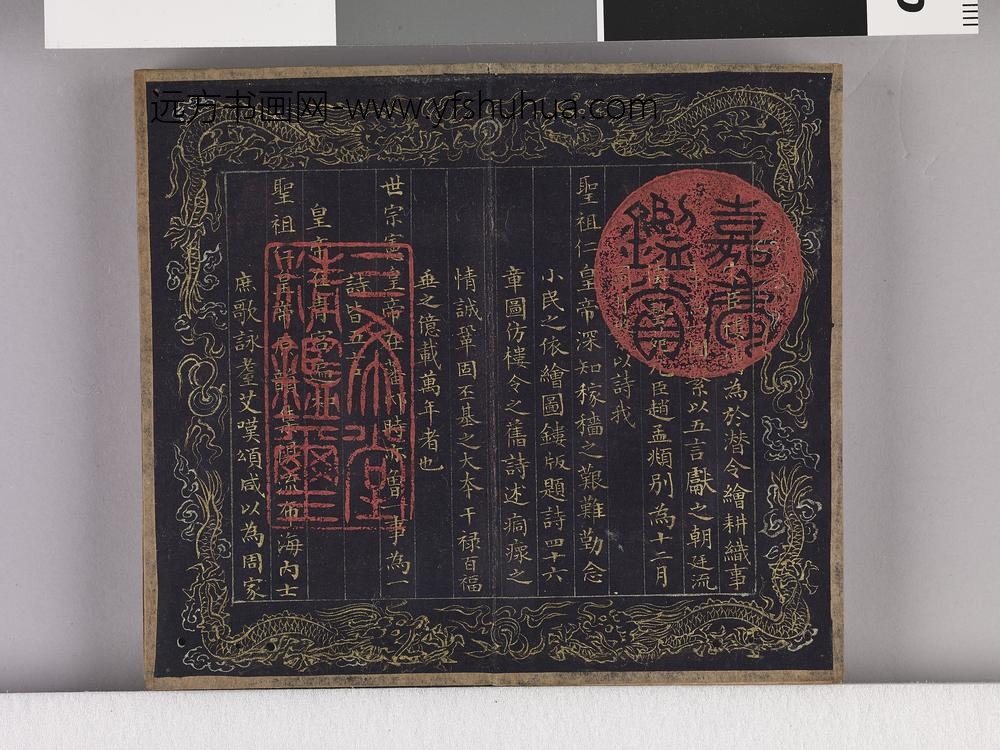 远方书画网-www.yfshuhua.com
為於潛令繪耕織事
系以五言獻之朝廷流
臣趙孟頫別為十二月
以詩我
聖祖仁皇帝深知稼穡之艱難勤念
小民之依繪圖鏤版題詩四十六
章圖仿樓令之舊詩述痌瘝之
情誠鞏固丕基之大本干祿百福
垂之億載萬年者也
世宗憲皇帝在藩邸時亦魯一事為一
詩皆五言
皇帝在青宮
聖祖仁皇帝韻流布海內士
庶歌詠耋艾嘆頌咸以為周家
嘉慶鑑賞
三希堂精鑑璽